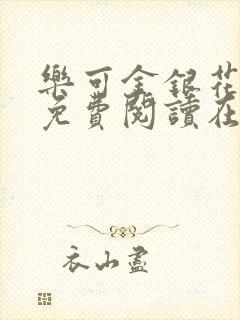 樂可金銀花
免費閱讀在
衣山盡